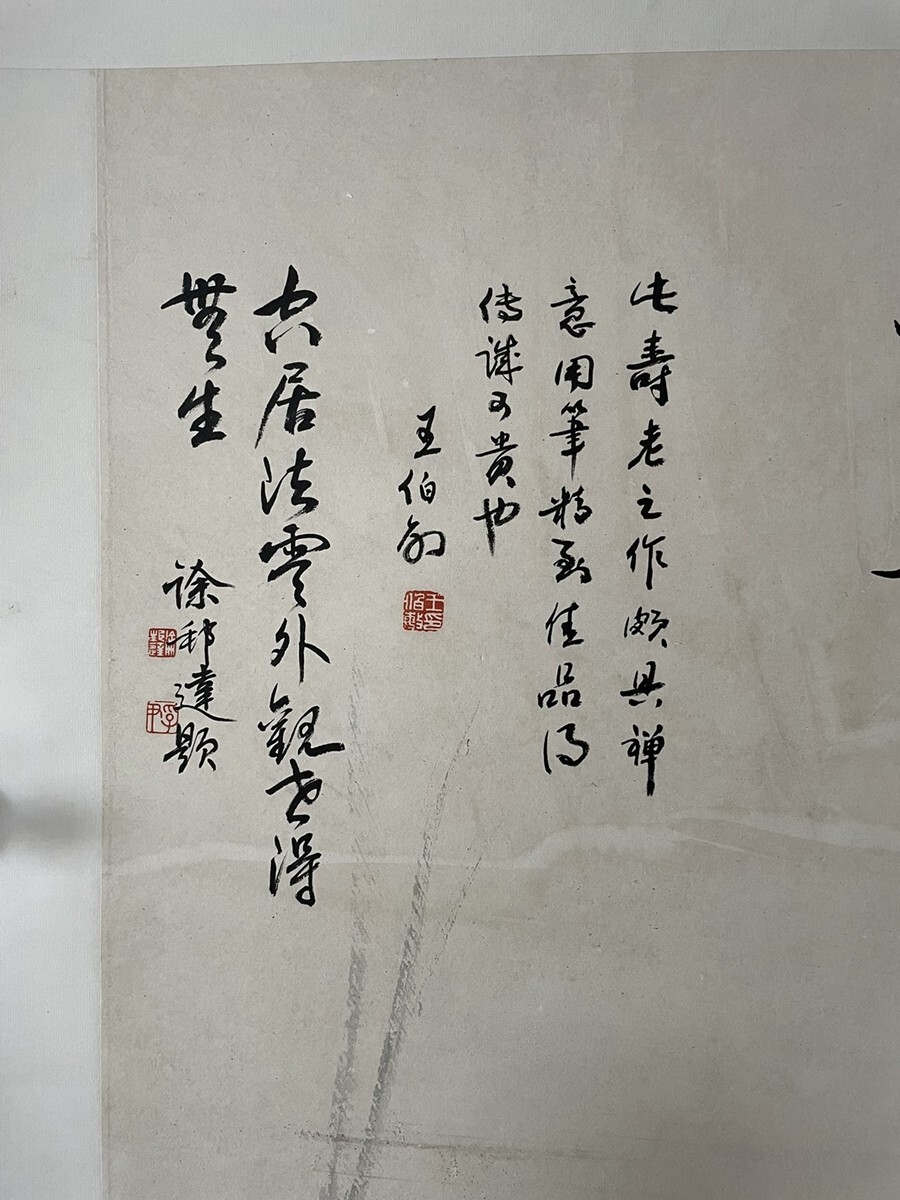 此壽老之作頗具禪
意用筆精到佳品得
傳誠可貴也
王伯敏
王伯敏印
空居法雲外觀世得
無生
徐邦達題